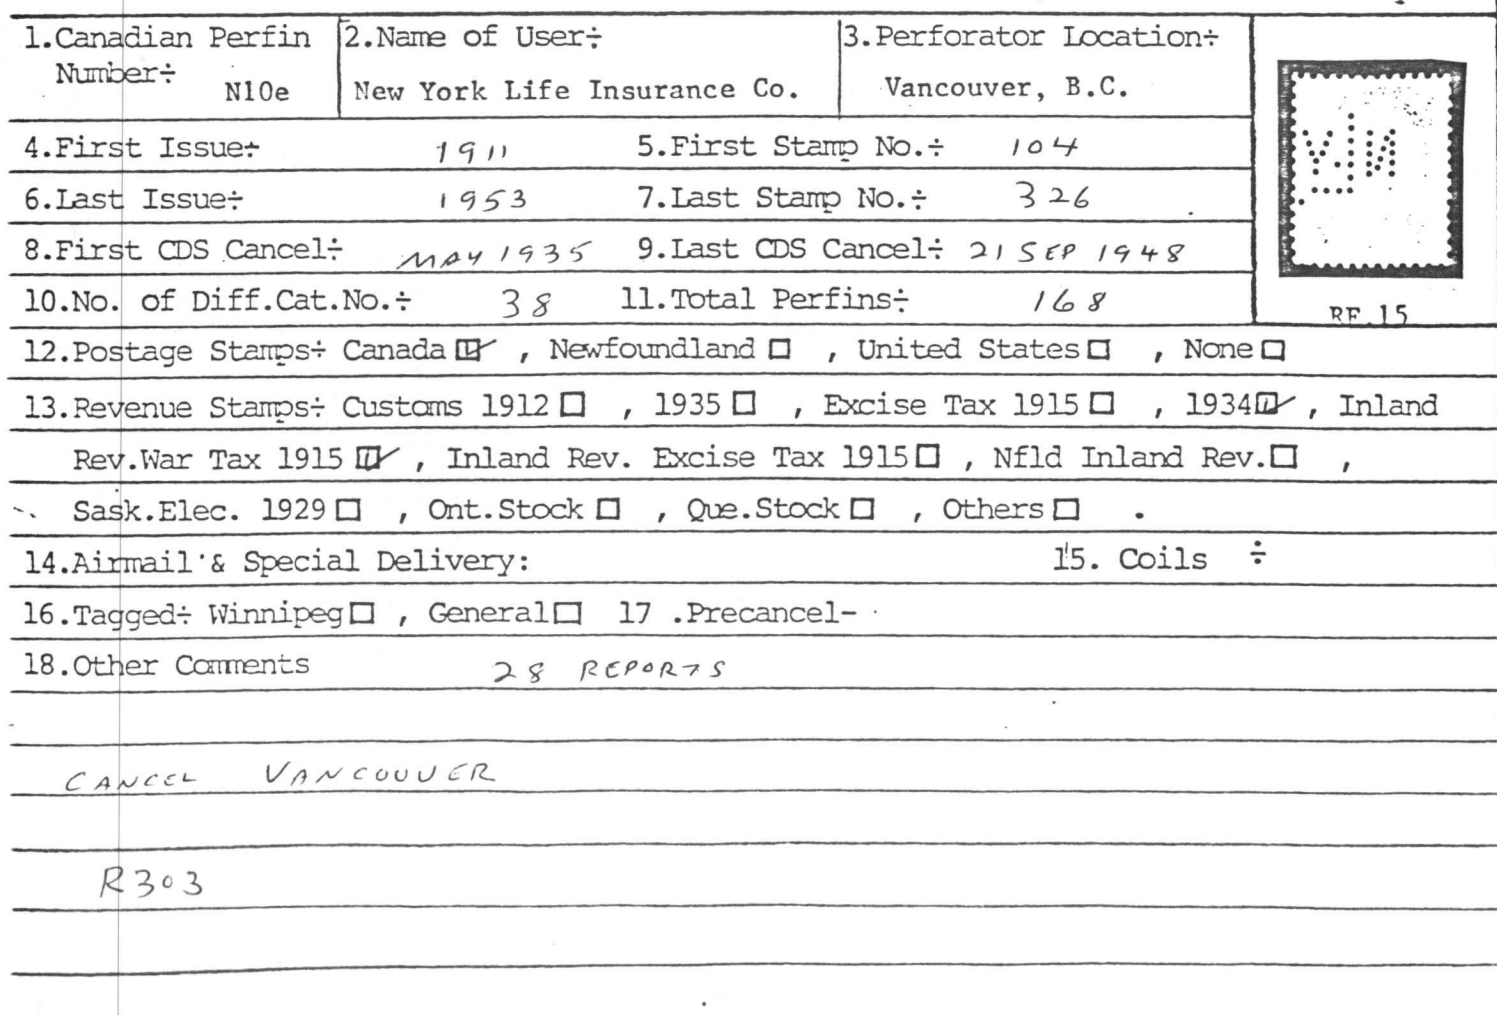 1.Canadian Perfin Number÷ N10e
2.Name of User÷ New York Life Insurance Co.
3.Perforator Location÷ Vancouver, B.C.
4.First Issue÷ 1911 5.First Stamp No.÷ 104
6.Last Issue÷ 1953 7.Last Stamp No.÷ 326
8.First CDS Cancel÷ MAY 1935 9.Last CDS Cancel÷ 21 SEP 1948
10.No. of Diff.Cat.No.÷ 38 11.Total Perfins÷ 168
RF.15
12.Postage Stamps÷ Canada ☑ , Newfoundland ☐ , United States ☐ , None ☐
13.Revenue Stamps÷ Customs 1912 ☐ , 1935 ☐ , Excise Tax 1915 ☐ , 1934 ☑ , Inland
Rev.War Tax 1915 ☑ , Inland Rev. Excise Tax 1915 ☐ , Nfld Inland Rev. ☐ ,
Sask.Elec. 1929 ☐ , Ont.Stock ☐ , Que.Stock ☐ , Others ☐ .
14.Airmail & Special Delivery: 15. Coils ÷
16.Tagged÷ Winnipeg ☐ , General ☐ 17 .Precancel-
18.Other Comments 28 REPORTS
CANCEL VANCOUVER
R303